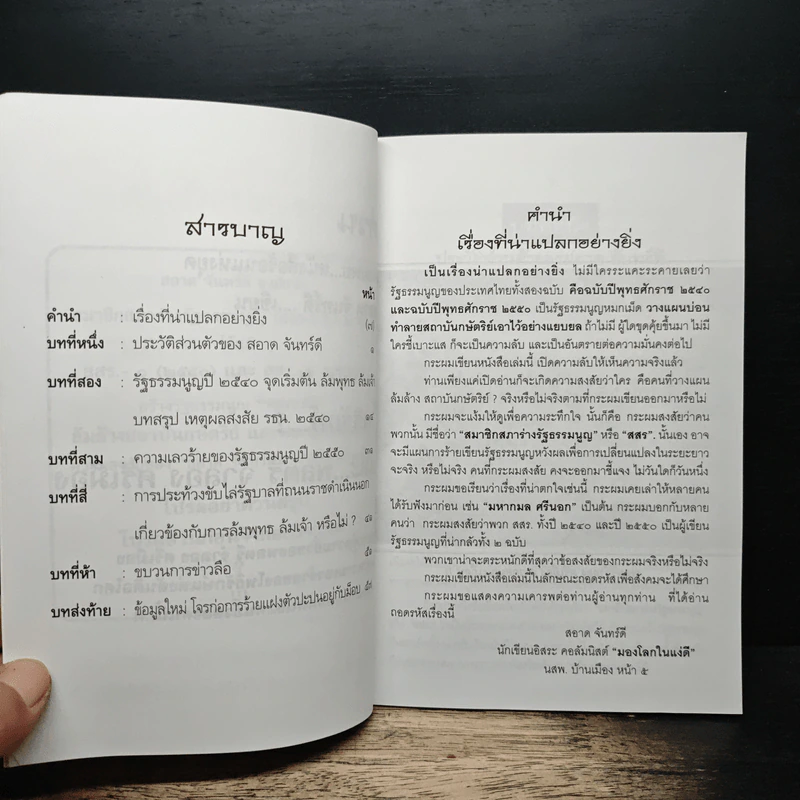 สารบาญ
หน้า
คำนำ : เรื่องที่น่าแปลกอย่างยิ่ง (๓)
บทที่หนึ่ง : ประวัติส่วนตัวของ สอาด จันทร์ดี ๑
บทที่สอง : รัฐธรรมนูญปี ๒๕๔๐ จุดเริ่มต้น ล้มพุทธ ล้มเจ้า
บทสรุป เหตุผลสงสัย รธน. ๒๕๔๐ ๑๔
บทที่สาม : ความเลวร้ายของรัฐธรรมนูญปี ๒๕๕๐ ๓๑
บทที่สี่ : การประท้วงขับไล่รัฐบาลที่ถนนราชดำเนินนอก
เกี่ยวข้องกับการล้มพุทธ ล้มเจ้า หรือไม่ ?
บทที่ห้า : ขบวนการข่าวลือ
บทส่งท้าย : ข้อมูลใหม่ โจรก่อการร้ายแฝงตัวปะปนอยู่กับม็อบ
คำนำ
เรื่องที่น่าแปลกอย่างยิ่ง
เป็นเรื่องน่าแปลกอย่างยิ่ง ไม่มีใครระแคะระคายเลยว่า
รัฐธรรมนูญของประเทศไทยทั้งสองฉบับ คือฉบับปีพุทธศักราช ๒๕๔๐
และฉบับปีพุทธศักราช ๒๕๕๐ เป็นรัฐธรรมนูญหมกเม็ด วางแผนบ่อน
ทำลายสถาบันกษัตริย์เอาไว้อย่างแยบยล ถ้าไม่มี ผู้ใดขุดคุ้ยขึ้นมา ไม่มี
ใครชี้เบาะแส ก็จะเป็นความลับ และเป็นอันตรายต่อความมั่นคงต่อไป
กระผมเขียนหนังสือเล่มนี้ เปิดความลับให้เห็นความจริงแล้ว
ท่านเพียงแค่เปิดอ่านก็จะเกิดความสงสัยว่าใคร คือคนที่วางแผน
ล้มล้าง สถาบันกษัตริย์ ? จริงหรือไม่จริงตามที่กระผมเขียนออกมาหรือไม่
กระผมจะแง้มให้ดูเพื่อความระทึกใจ นั้นก็คือ กระผมสงสัยว่าคน
พวกนั้น มีชื่อว่า "สมาชิกสภาร่างรัฐธรรมนูญ" หรือ "สสร". นั้นเอง อาจ
จะมีแผนการร้ายเขียนรัฐธรรมนูญหวังผลเพื่อการเปลี่ยนแปลงในระยะยาว
จะจริง หรือไม่จริง คนที่กระผมสงสัย คงจะออกมาชี้แจง ไม่วันใดก็วันหนึ่ง
กระผมขอเรียนว่าเรื่องที่น่าตกใจเช่นนี้ กระผมเคยเล่าให้หลายคน
ได้รับฟังมาก่อน เช่น "มหากมล ศรีนอก" เป็นต้น กระผมบอกกับหลาย
คนว่า กระผมสงสัยว่าพวก สสร. ทั้งปี ๒๕๔๐ และปี ๒๕๕๐ เป็นผู้เขียน
รัฐธรรมนูญที่น่ากลัวทั้ง ๒ ฉบับ
พวกเขาน่าจะตระหนักดีที่สุดว่าข้อสงสัยของกระผมจริงหรือไม่จริง
กระผมเขียนหนังสือเล่มนี้ในลักษณะถอดรหัส เพื่อสังคมจะได้ศึกษา
กระผมขอแสดงความเคารพต่อท่านผู้อ่านทุกท่าน ที่ได้อ่าน
ถอดรหัสเรื่องนี้
สอาด จันทร์ดี
นักเขียนอิสระ คอลัมนิสต์ "มองโลกในแง่ดี"
นสพ. บ้านเมือง หน้า ๕